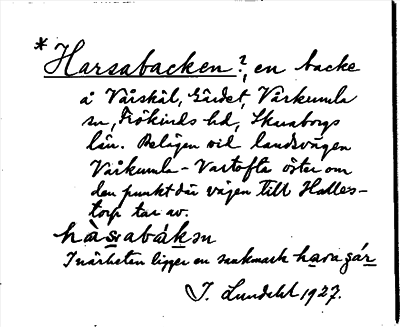 * Harsabacken?, en backe
å Vårskäl, Gärdet, Vårkumla
sn, Frökinds hd, Skaraborgs
län. Belägen vid landsvägen
Vårkumla - Vartofta öster om
den punkt där vägen till Halles-
torp tar av.
hàsabákən
I närheten ligger en sankmark
J. Lundahl 1927.